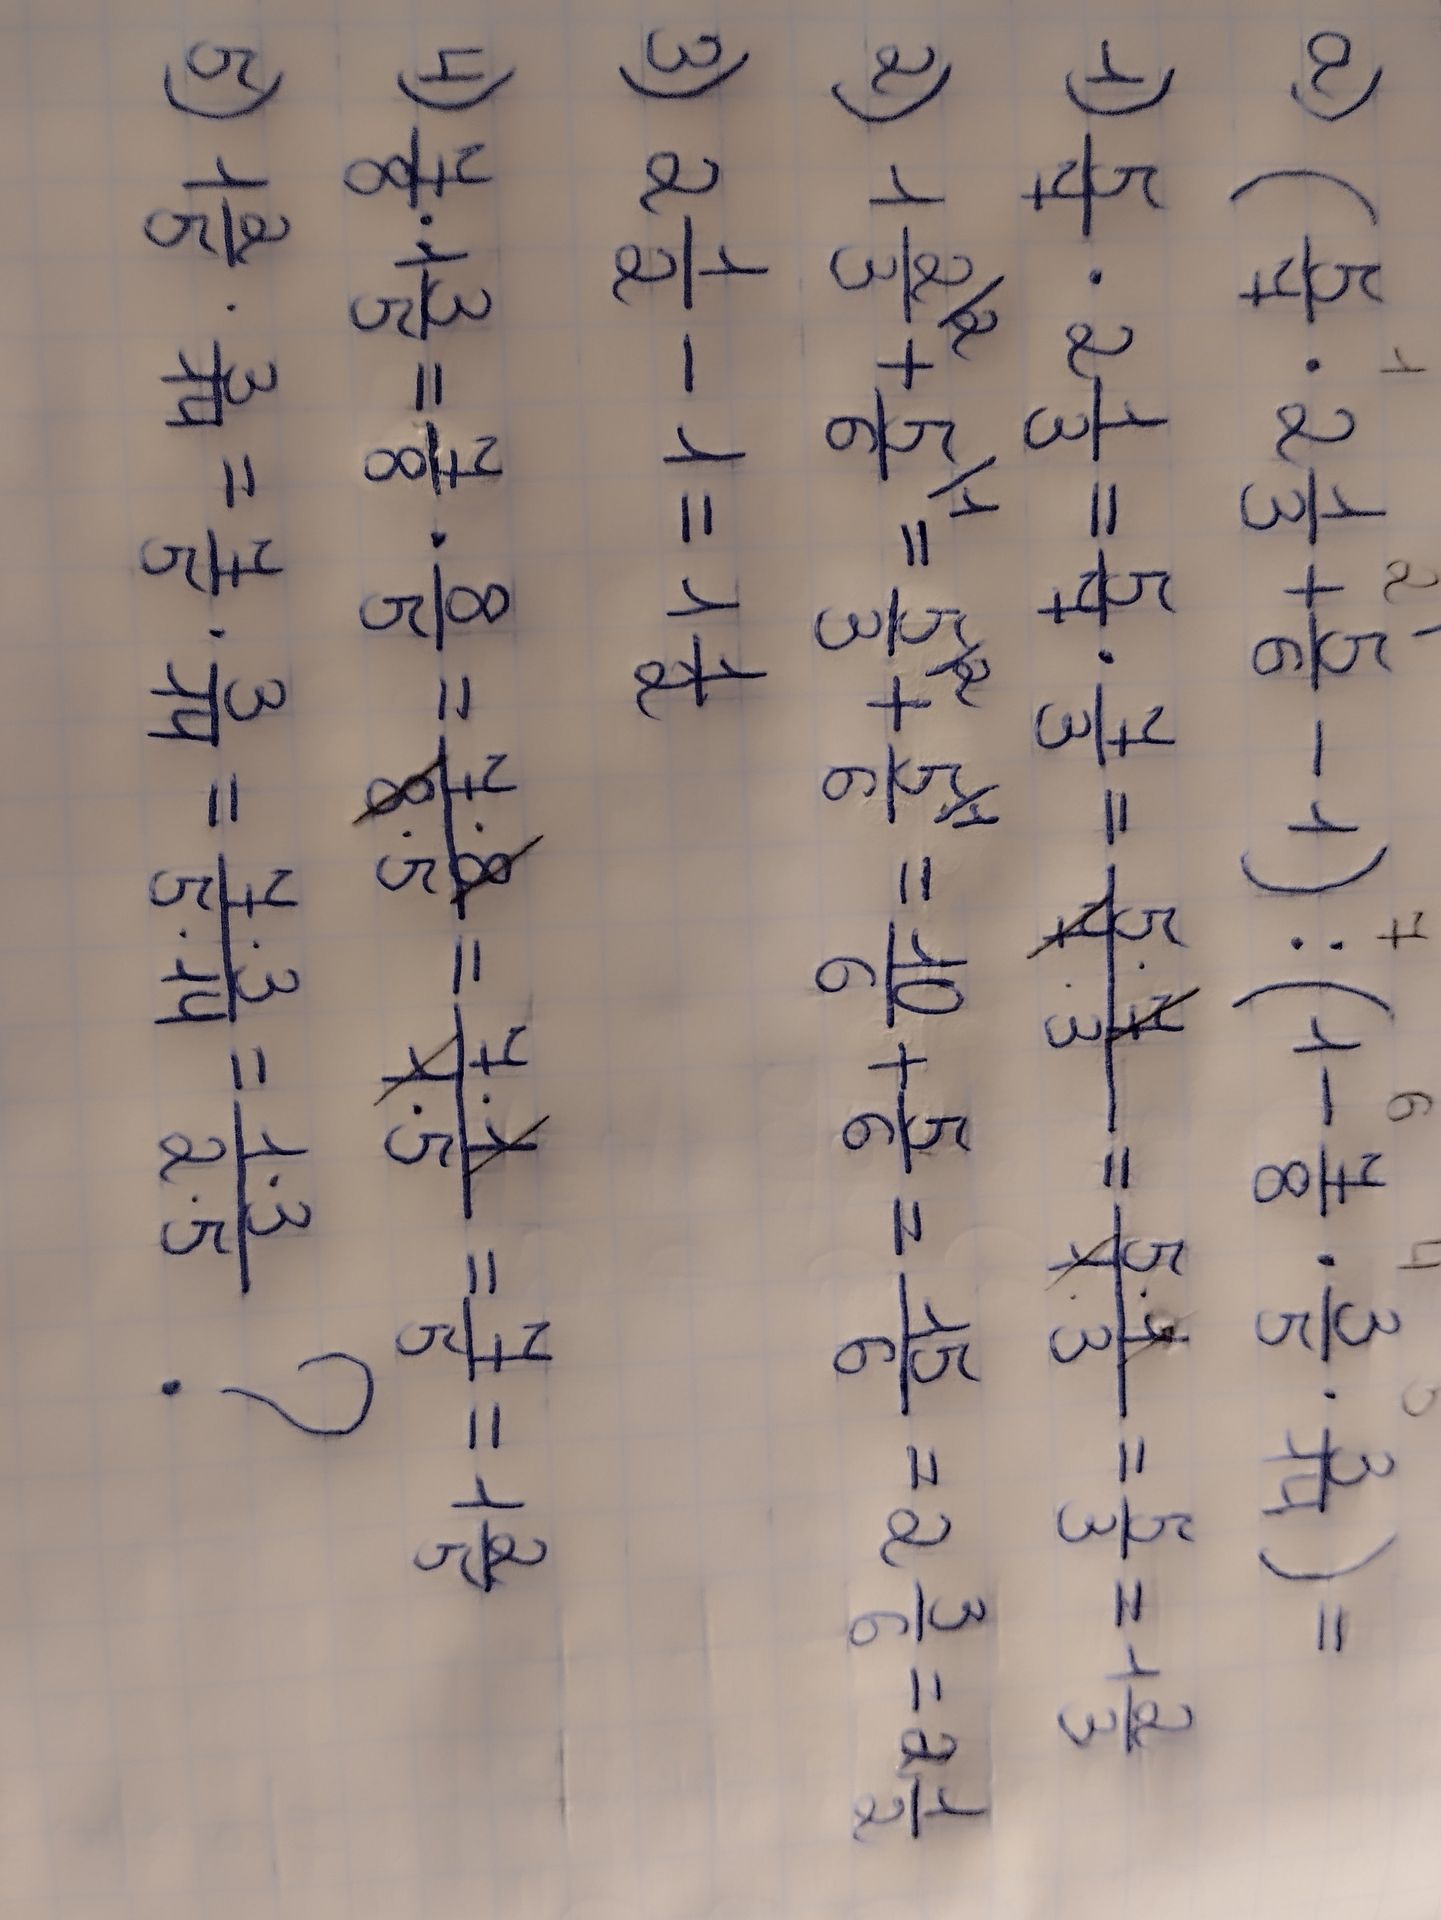 1 2 7 6 4 5
2) (5/7 · 2 1/3 + 5/6 - 1) : (1 - 7/8 · 3/5 · 3/14) =
1) 5/7 · 2 1/3 = 5/7 · 7/3 = 5·7/7·3 = 5·1/1·3 = 5/3 = 1 2/3
2) 1 2/3 /2 + 5/6 /1 = 5/3 /2 + 5/6 /1 = 10/6 + 5/6 = 15/6 = 2 3/6 = 2 1/2
3) 2 1/2 - 1 = 1 1/2
4) 7/8 · 1 3/5 = 7/8 · 8/5 = 7·8/8·5 = 7·1/1·5 = 7/5 = 1 2/5
5) 1 2/5 · 3/14 = 7/5 · 3/14 = 7·3/5·14 = 1·3/2·5 ?